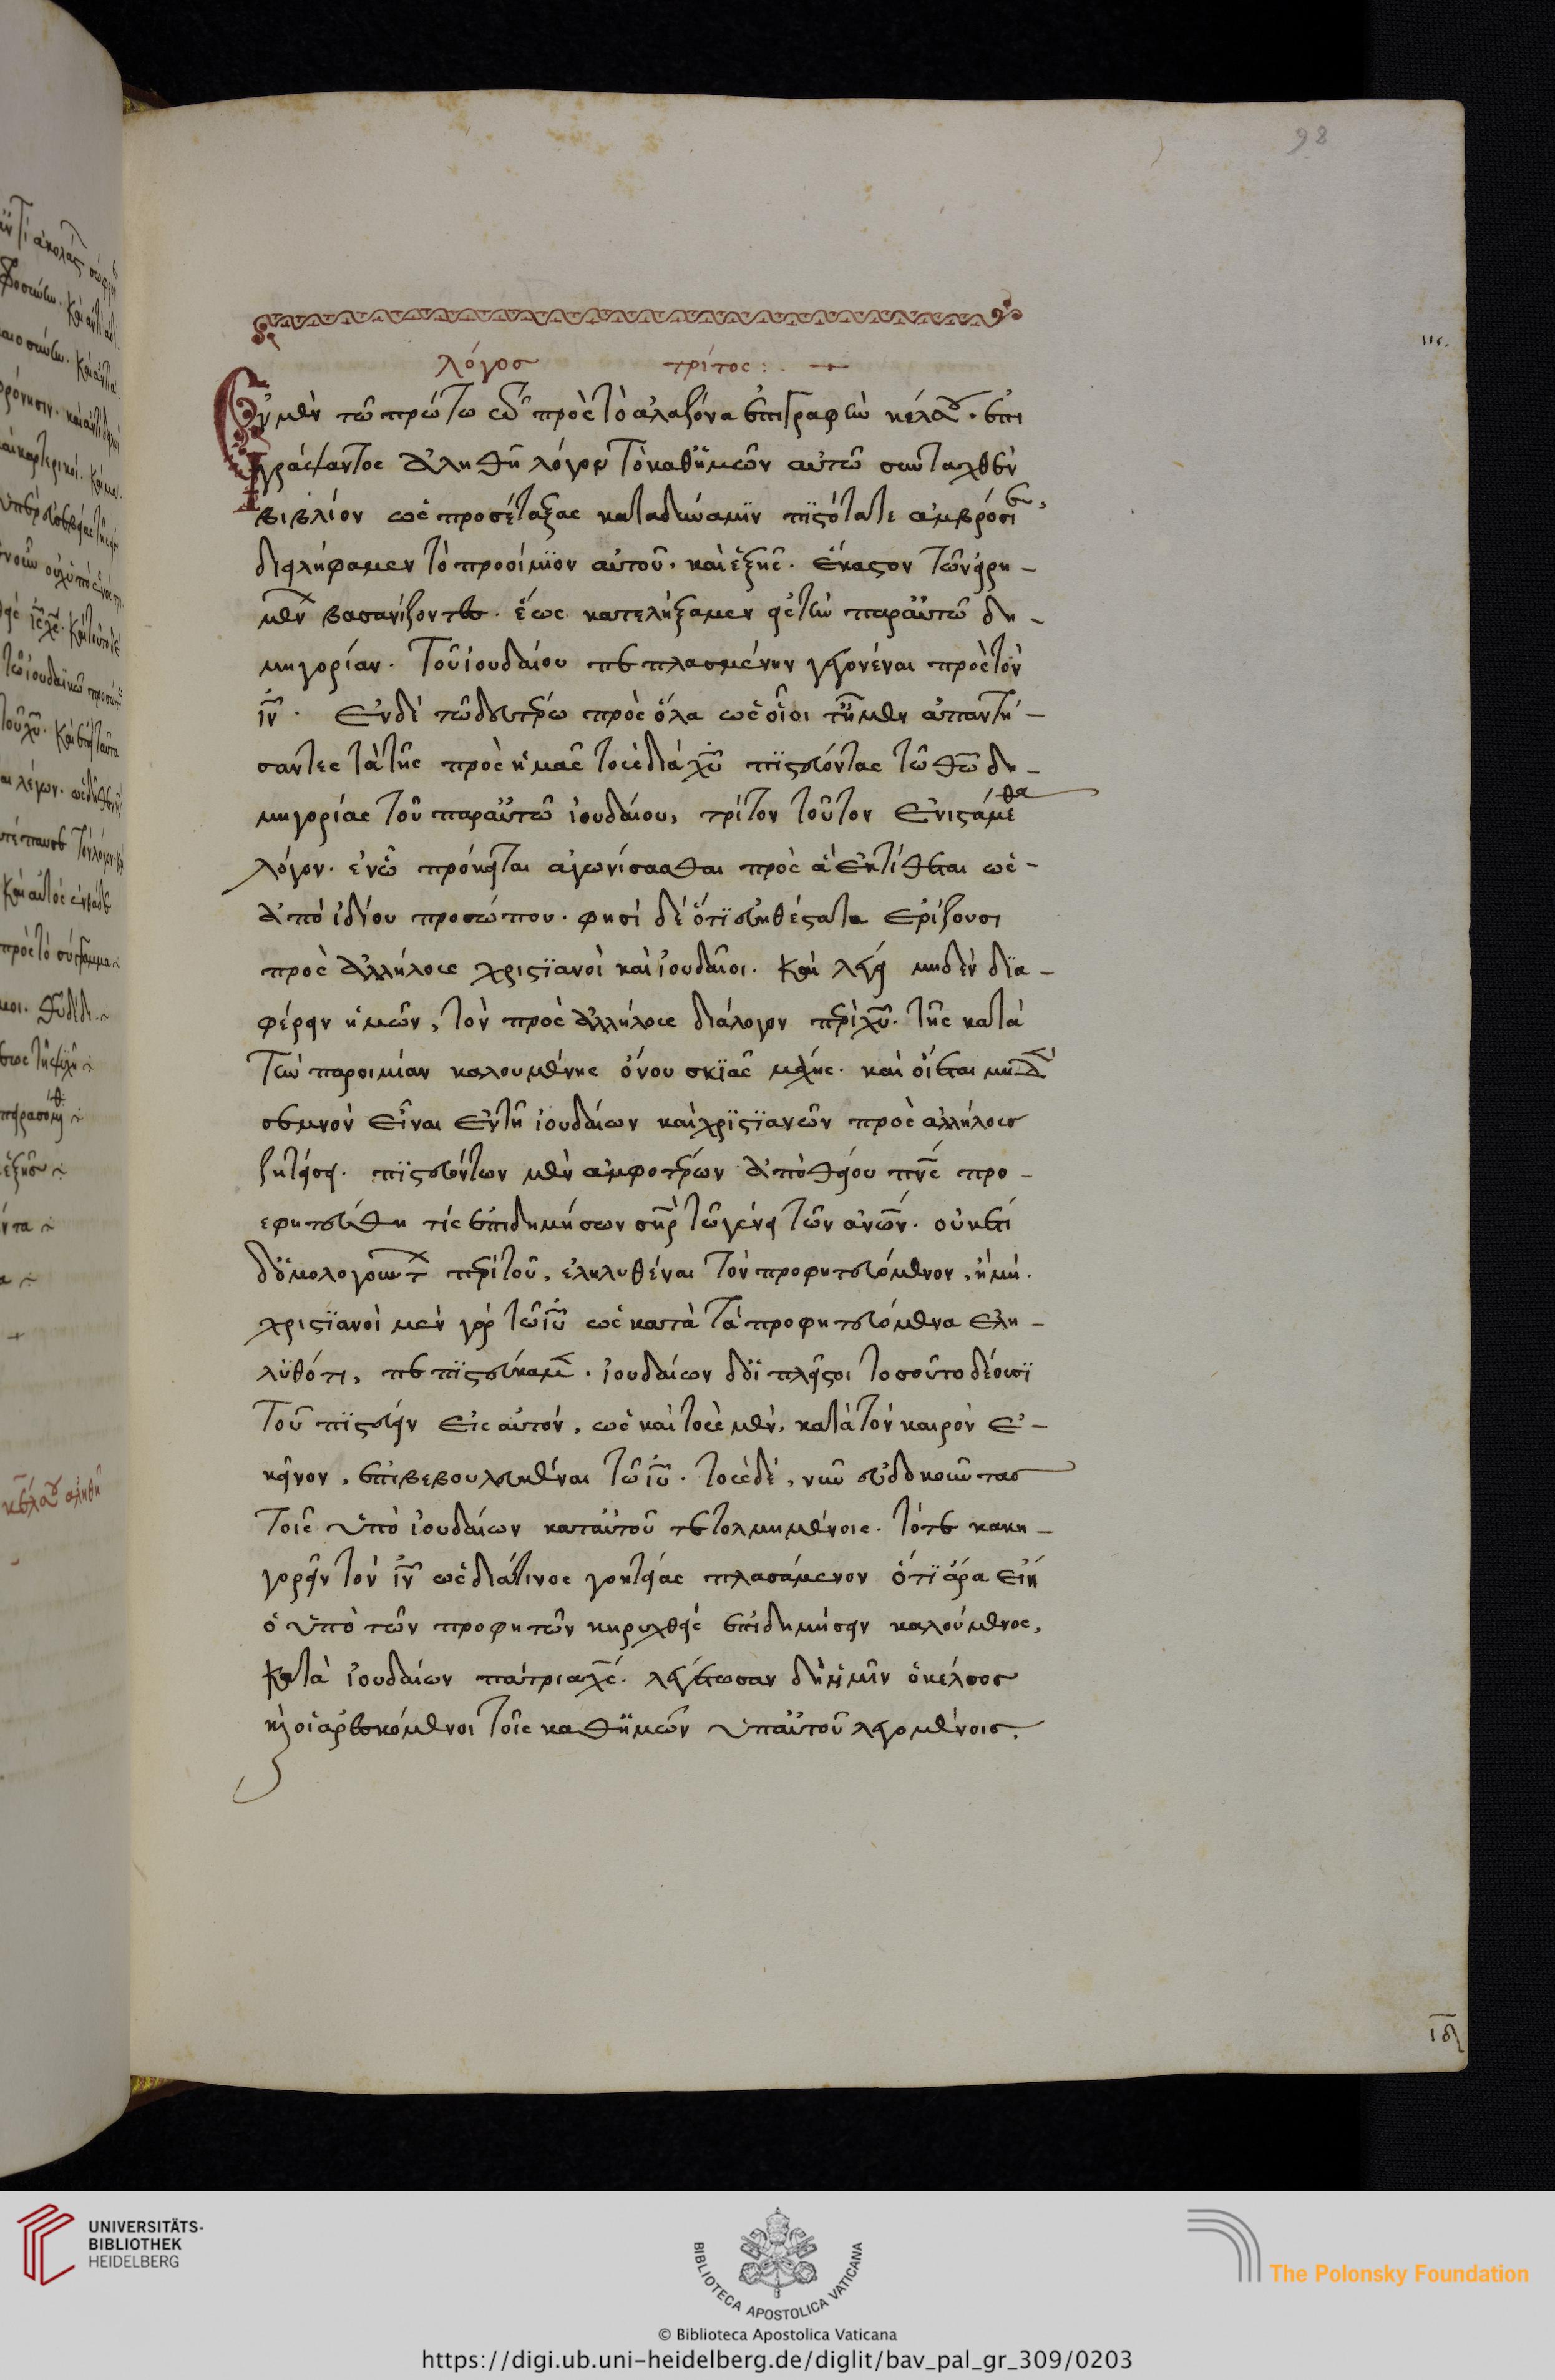 λόγοσ τρίτος :. —
Ἐν μὲν τῶ πρώτω τῶν πρὸς τὸ ἀλαζόνα ἐπιγραφὴν κέλσου. ἐπι
γράψαντος ἀληθῆ λόγον τὸ καθ᾽ἡμῶν αὐτῶ συνταχθὲν
βιβλίον ὡς προσέταξας κατὰ δύναμϊν πϊστότατε ἀμβρόσιε,
διειλήφαμεν τὸ προοίμϊον αὐτοῦ. καὶ ἑξῆς. ἕκαστον τῶν εἰρη -
μένων βασανίζοντες. ἕως κατελήξαμεν εἰς τὴν παρ᾽αὐτῶ δη -
μηγορίαν. τοῦ ἰουδαίου πεπλασμένην γεγονέναι πρὸς τὸν
ἰν̅. Ἐν δὲ τῶ δευτέρω πρὸς ὅλα ὡς οἷοι τ᾽ ἦμεν ἀπαντή -
σαντες τὰ τῆς πρὸς ἡμᾶς τοὺς διὰ χυ̅ πϊστεύοντας τῶ θω̅ δη -
μηγορίας τοῦ παρ᾽αὐτῶ ἰουδαίου, τρίτον τοῦτον ἐνιστάμεθα
λόγον. ἐν ὧ πρόκειται ἀγωνίσασθαι πρὸς ἃ ἐκτίθεται ὡς -
ἀπὸ ἰδίου προσώπου. φησὶ δὲ ὅτϊ εὐηθέστατα ἐρίζουσι
πρὸς ἀλλήλους χριστϊανοὶ καὶ ἰουδαῖοι. καὶ λέγει μηδὲν δϊα -
φέρειν ἡμῶν, τὸν πρὸς ἀλλήλους διάλογον περὶ χυ̅. τῆς κατὰ
τὴν παροιμίαν καλουμένης ὄνου σκϊᾶς μάχης. καὶ οἴεται μηδὲν
σεμνὸν εἶναι ἐν τῆ ἰουδαίων καὶ χρϊστϊανῶν πρὸς ἀλλήλουσ
ζητήσει. πϊστευόντων μὲν ἀμφοτέρων ἀπὸ θείου πνς̅ προ -
εφητεύθη τίς ἐπιδημήσων σηρ̅ τῶ γένει τῶν ἀνω̅ν. οὐκέτι
δ᾽ ὁμολογούντων περὶ τοῦ, ἐληλυθέναι τὸν προφητευόμενον, ἢ μή.
χριστϊανοὶ μὲν γὰρ τῶ ιυ̅ ὡς κατὰ τὰ προφητευόμενα ἐλη -
λϋθότι, πεπϊστεύκαμεν. ἰουδαίων δ᾽ οἱ πλεῖστοι τοσοῦτο δέουσϊ
τοῦ πϊστεύειν εἰς αὐτόν, ὡς καὶ τοὺς μὲν, κατὰ τὸν καιρὸν ἐ -
κεῖνον, ἐπιβεβουλευκέναι τῶ ιυ̅. τοὺς δὲ, νῦν εὐδοκοῦντας
τοῖς ὑπὸ ἰουδαίων κατ᾽αὐτοῦ τετολμημένοις. τότε κακη -
γορεῖν τὸν ἰν̅ ὡς διά τινος γοητείας πλασάμενον ὅτϊ ἄρα εἴη
ὁ ὑπὸ τῶν προφητῶν κηρυχθεὶς ἐπιδημήσειν καλούμενος,
κατὰ ἰουδαίων πάτρια χς̅. λεγέτωσαν δὴ ἡμῖν ὁ κέλσοσ
κ̀ οἱ ἀρεσκόμενοι τοῖς καθ᾽ἡμῶν ὑπ᾽αὐτοῦ λεγομένοισ.
98
116.
ιδ
UNIVERSITÄTS-
BIBLIOTHEK
HEIDELBERG
BIBLIOTECA APOSTOLICA VATICANA
The Polonsky Foundation
© Biblioteca Apostolica Vaticana
https://digi.ub.uni-heidelberg.de/diglit/bav_pal_gr_309/0203